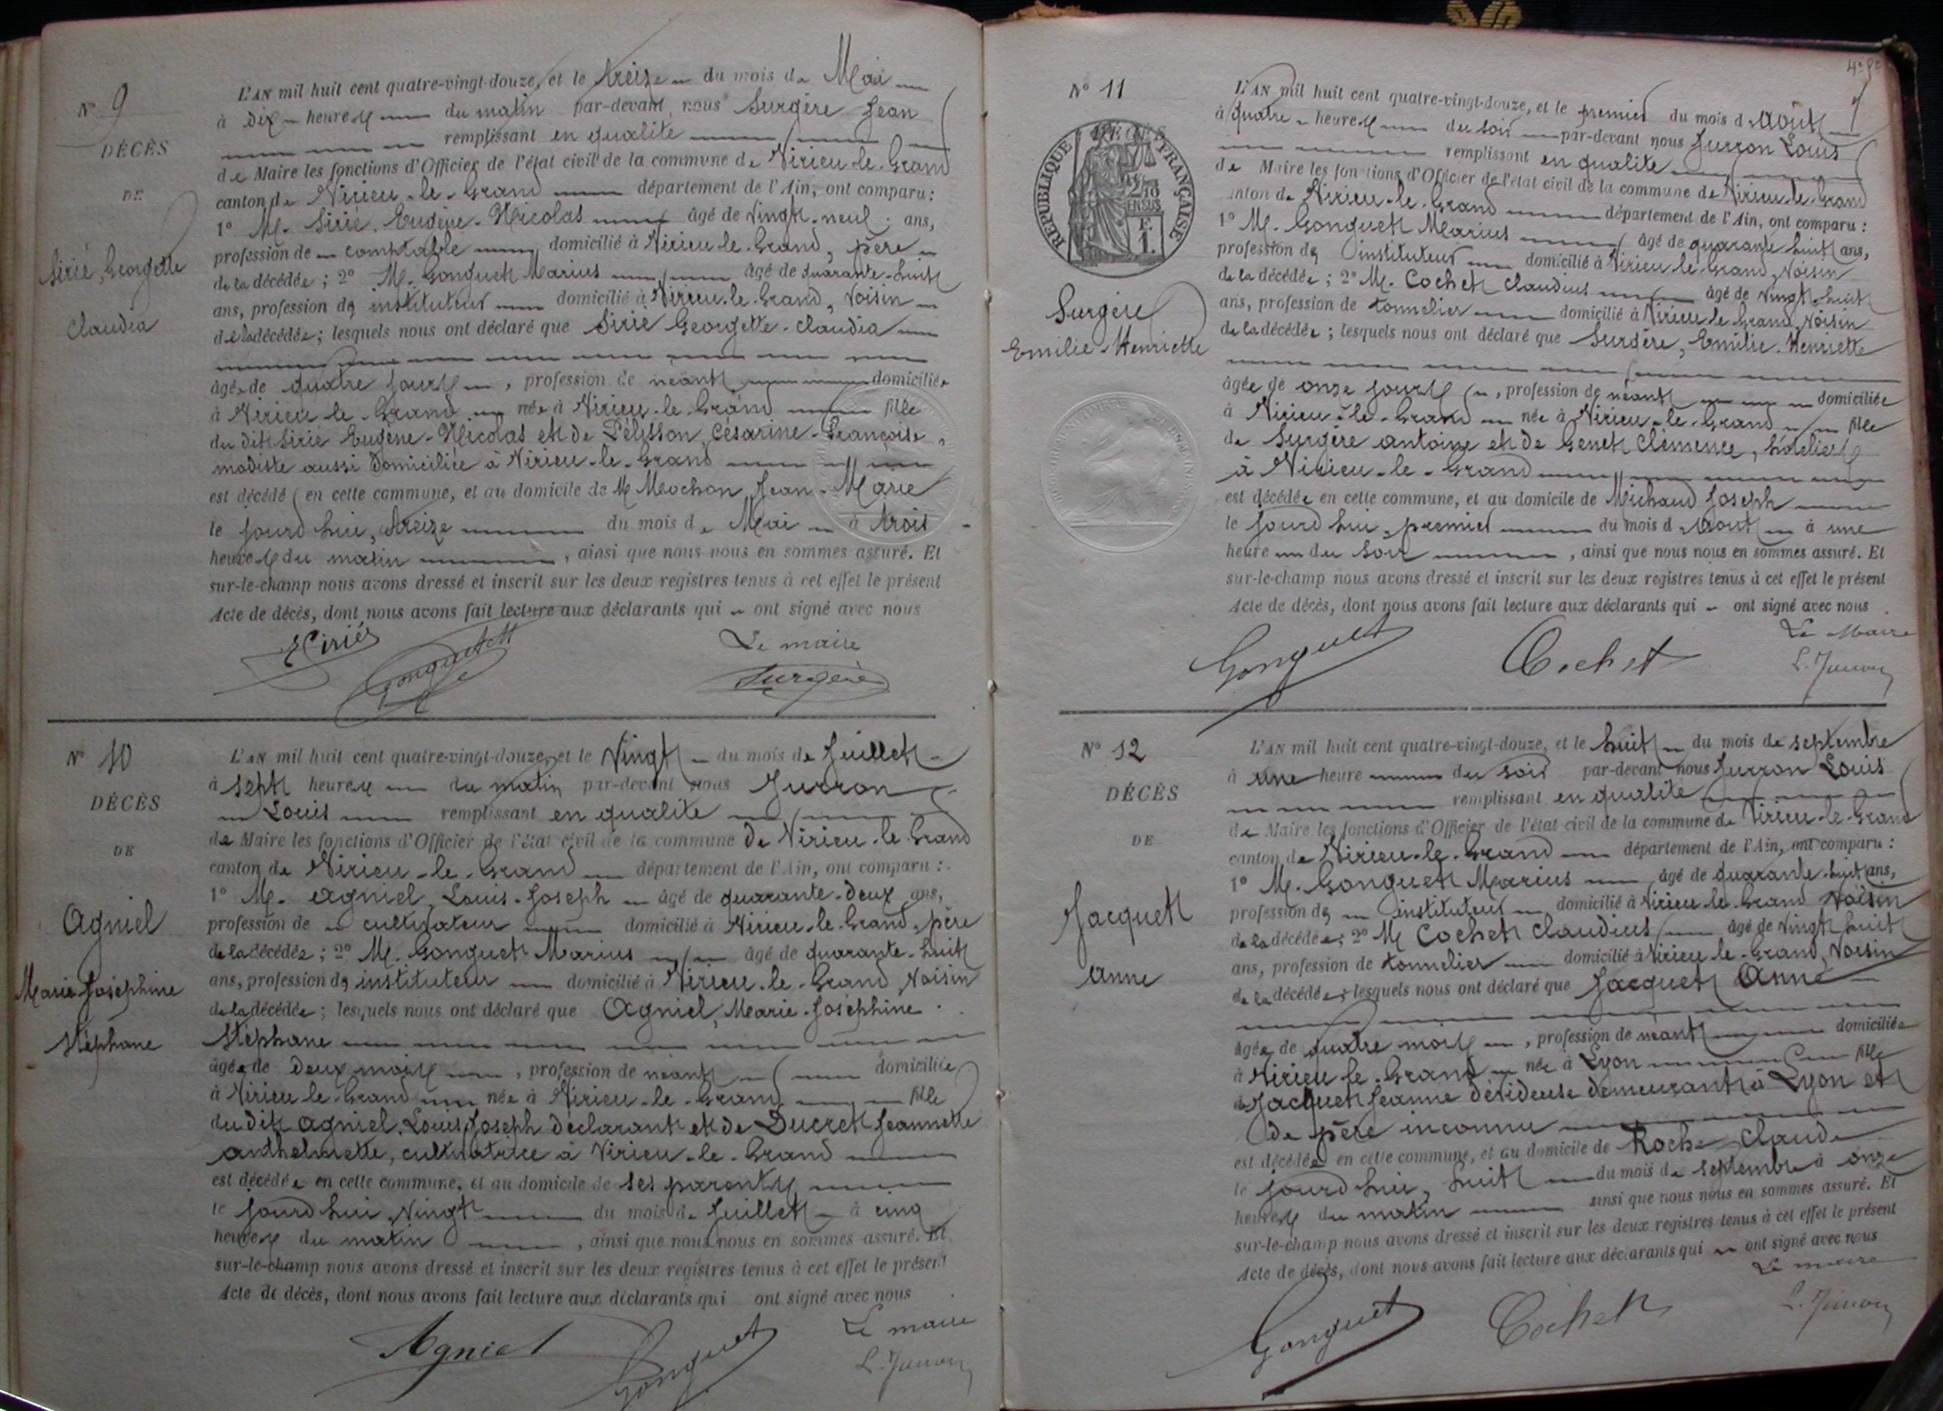 N° 9
DÉCÈS
DE
Sirié, Georgette
Claudia
L'AN mil huit cent quatre-vingt-douze, et le treize du mois de Mai
à dix heures du matin par-devant nous Surgère Jean
remplissant en qualité
de Maire les fonctions d'Officier de l'état civil de la commune de Virieu-le-Grand
canton de Virieu-le-Grand département de l'Ain, ont comparu :
1° M. Sirié Eugène-Nicolas âgé de vingt-neuf ans,
profession de comptable domicilié à Virieu-le-Grand, père
de la décédée ; 2° M. Gonguet Marius âgé de quarante-huit
ans, profession de instituteur domicilié à Virieu-le-Grand, voisin
de la décédée ; lesquels nous ont déclaré que Sirié Georgette-Claudia
âgée de quatre jours, profession de néant domiciliée
à Virieu-le-Grand née à Virieu-le-Grand fille
du dit Sirié Eugène-Nicolas et de Pélisson, Césarine-Françoise,
modiste aussi domiciliée à Virieu-le-Grand
est décédé en cette commune, et au domicile de M Mochon, Jean-Marie
le jourd'hui, treize du mois de Mai à trois
heures du matin, ainsi que nous nous en sommes assuré. Et
sur-le-champ nous avons dressé et inscrit sur les deux registres tenus à cet effet le présent
Acte de décès, dont nous avons fait lecture aux déclarants qui ont signé avec nous
Gonguet
Le maire
Surgère
N° 10
DÉCÈS
DE
Agniel
Marie-Joséphine
Stéphane
L'AN mil huit cent quatre-vingt-douze, et le vingt du mois de Juillet
à sept heures du matin par-devant nous Jurron
Louis remplissant en qualité
de Maire les fonctions d'Officier de l'état civil de la commune de Virieu-le-Grand
canton de Virieu-le-Grand département de l'Ain, ont comparu :
1° M. Agniel, Louis-Joseph âgé de quarante-deux ans,
profession de cultivateur domicilié à Virieu-le-Grand, père
de la décédée ; 2° M. Gonguet Marius âgé de quarante-huit
ans, profession de instituteur domicilié à Virieu-le-Grand, voisin
de la décédée ; lesquels nous ont déclaré que Agniel, Marie-Joséphine
Stéphane
âgée de deux mois, profession de néant domiciliée
à Virieu-le-Grand née à Virieu-le-Grand fille
du dit Agniel, Louis-Joseph déclarant et de Ducret Jeannette
anthelmette, cultivatrice à Virieu-le-Grand
est décédée en cette commune, et au domicile de ses parents
le jourd'hui, vingt du mois de Juillet à cinq
heures du matin, ainsi que nous nous en sommes assuré. Et
sur-le-champ nous avons dressé et inscrit sur les deux registres tenus à cet effet le présent
Acte de décès, dont nous avons fait lecture aux déclarants qui ont signé avec nous
Agniel
Gonguet
Le maire
L. Jurron
N° 11
RÉPUBLIQUE FRANÇAISE
Surgère
Emilie-Henriette
L'AN mil huit cent quatre-vingt-douze, et le premier du mois d'Août
à quatre heures du soir par-devant nous Jurron Louis
remplissant en qualité
de Maire les fonctions d'Officier de l'état civil de la commune de Virieu-le-Grand
canton de Virieu-le-Grand département de l'Ain, ont comparu :
1° M. Gonguet Marius âgé de quarante-huit ans,
profession de instituteur domicilié à Virieu-le-Grand, voisin
de la décédée ; 2° M. Cochet Claudius âgé de vingt-huit
ans, profession de tonnelier domicilié à Virieu-le-Grand, voisin
de la décédée ; lesquels nous ont déclaré que Surgère, Emilie-Henriette
âgée de onze jours, profession de néant domiciliée
à Virieu-le-Grand née à Virieu-le-Grand fille
de Surgère antoine et de Genet Clémence, hôteliers
à Virieu-le-Grand
est décédée en cette commune, et au domicile de Michaud Joseph
le jourd'hui, premier du mois d'Août à une
heure du soir, ainsi que nous nous en sommes assuré. Et
sur-le-champ nous avons dressé et inscrit sur les deux registres tenus à cet effet le présent
Acte de décès, dont nous avons fait lecture aux déclarants qui ont signé avec nous
Gonguet
Cochet
Le Maire
L. Jurron
N° 12
DÉCÈS
DE
Jacquet
Anne
L'AN mil huit cent quatre-vingt-douze, et le huit du mois de septembre
à une heure du soir par-devant nous Jurron Louis
remplissant en qualité
de Maire les fonctions d'Officier de l'état civil de la commune de Virieu-le-Grand
canton de Virieu-le-Grand département de l'Ain, ont comparu :
1° M. Gonguet Marius âgé de quarante-huit ans,
profession de instituteur domicilié à Virieu-le-Grand voisin
de la décédée ; 2° M Cochet Claudius âgé de vingt huit
ans, profession de tonnelier domicilié à Virieu-le-Grand, voisin
de la décédée ; lesquels nous ont déclaré que Jacquet Anne
âgée de quatre mois, profession de néant domiciliée
à Virieu-le-Grand née à Lyon fille
de Jacquet Jeanne dévideuse demeurant à Lyon et
de père inconnu
est décédée en cette commune, et au domicile de Roche Claude
le jourd'hui, huit du mois de septembre à onze
heures du matin ainsi que nous nous en sommes assuré. Et
sur-le-champ nous avons dressé et inscrit sur les deux registres tenus à cet effet le présent
Acte de décès, dont nous avons fait lecture aux déclarants qui ont signé avec nous
Gonguet
Cochet
Le maire
L. Jurron